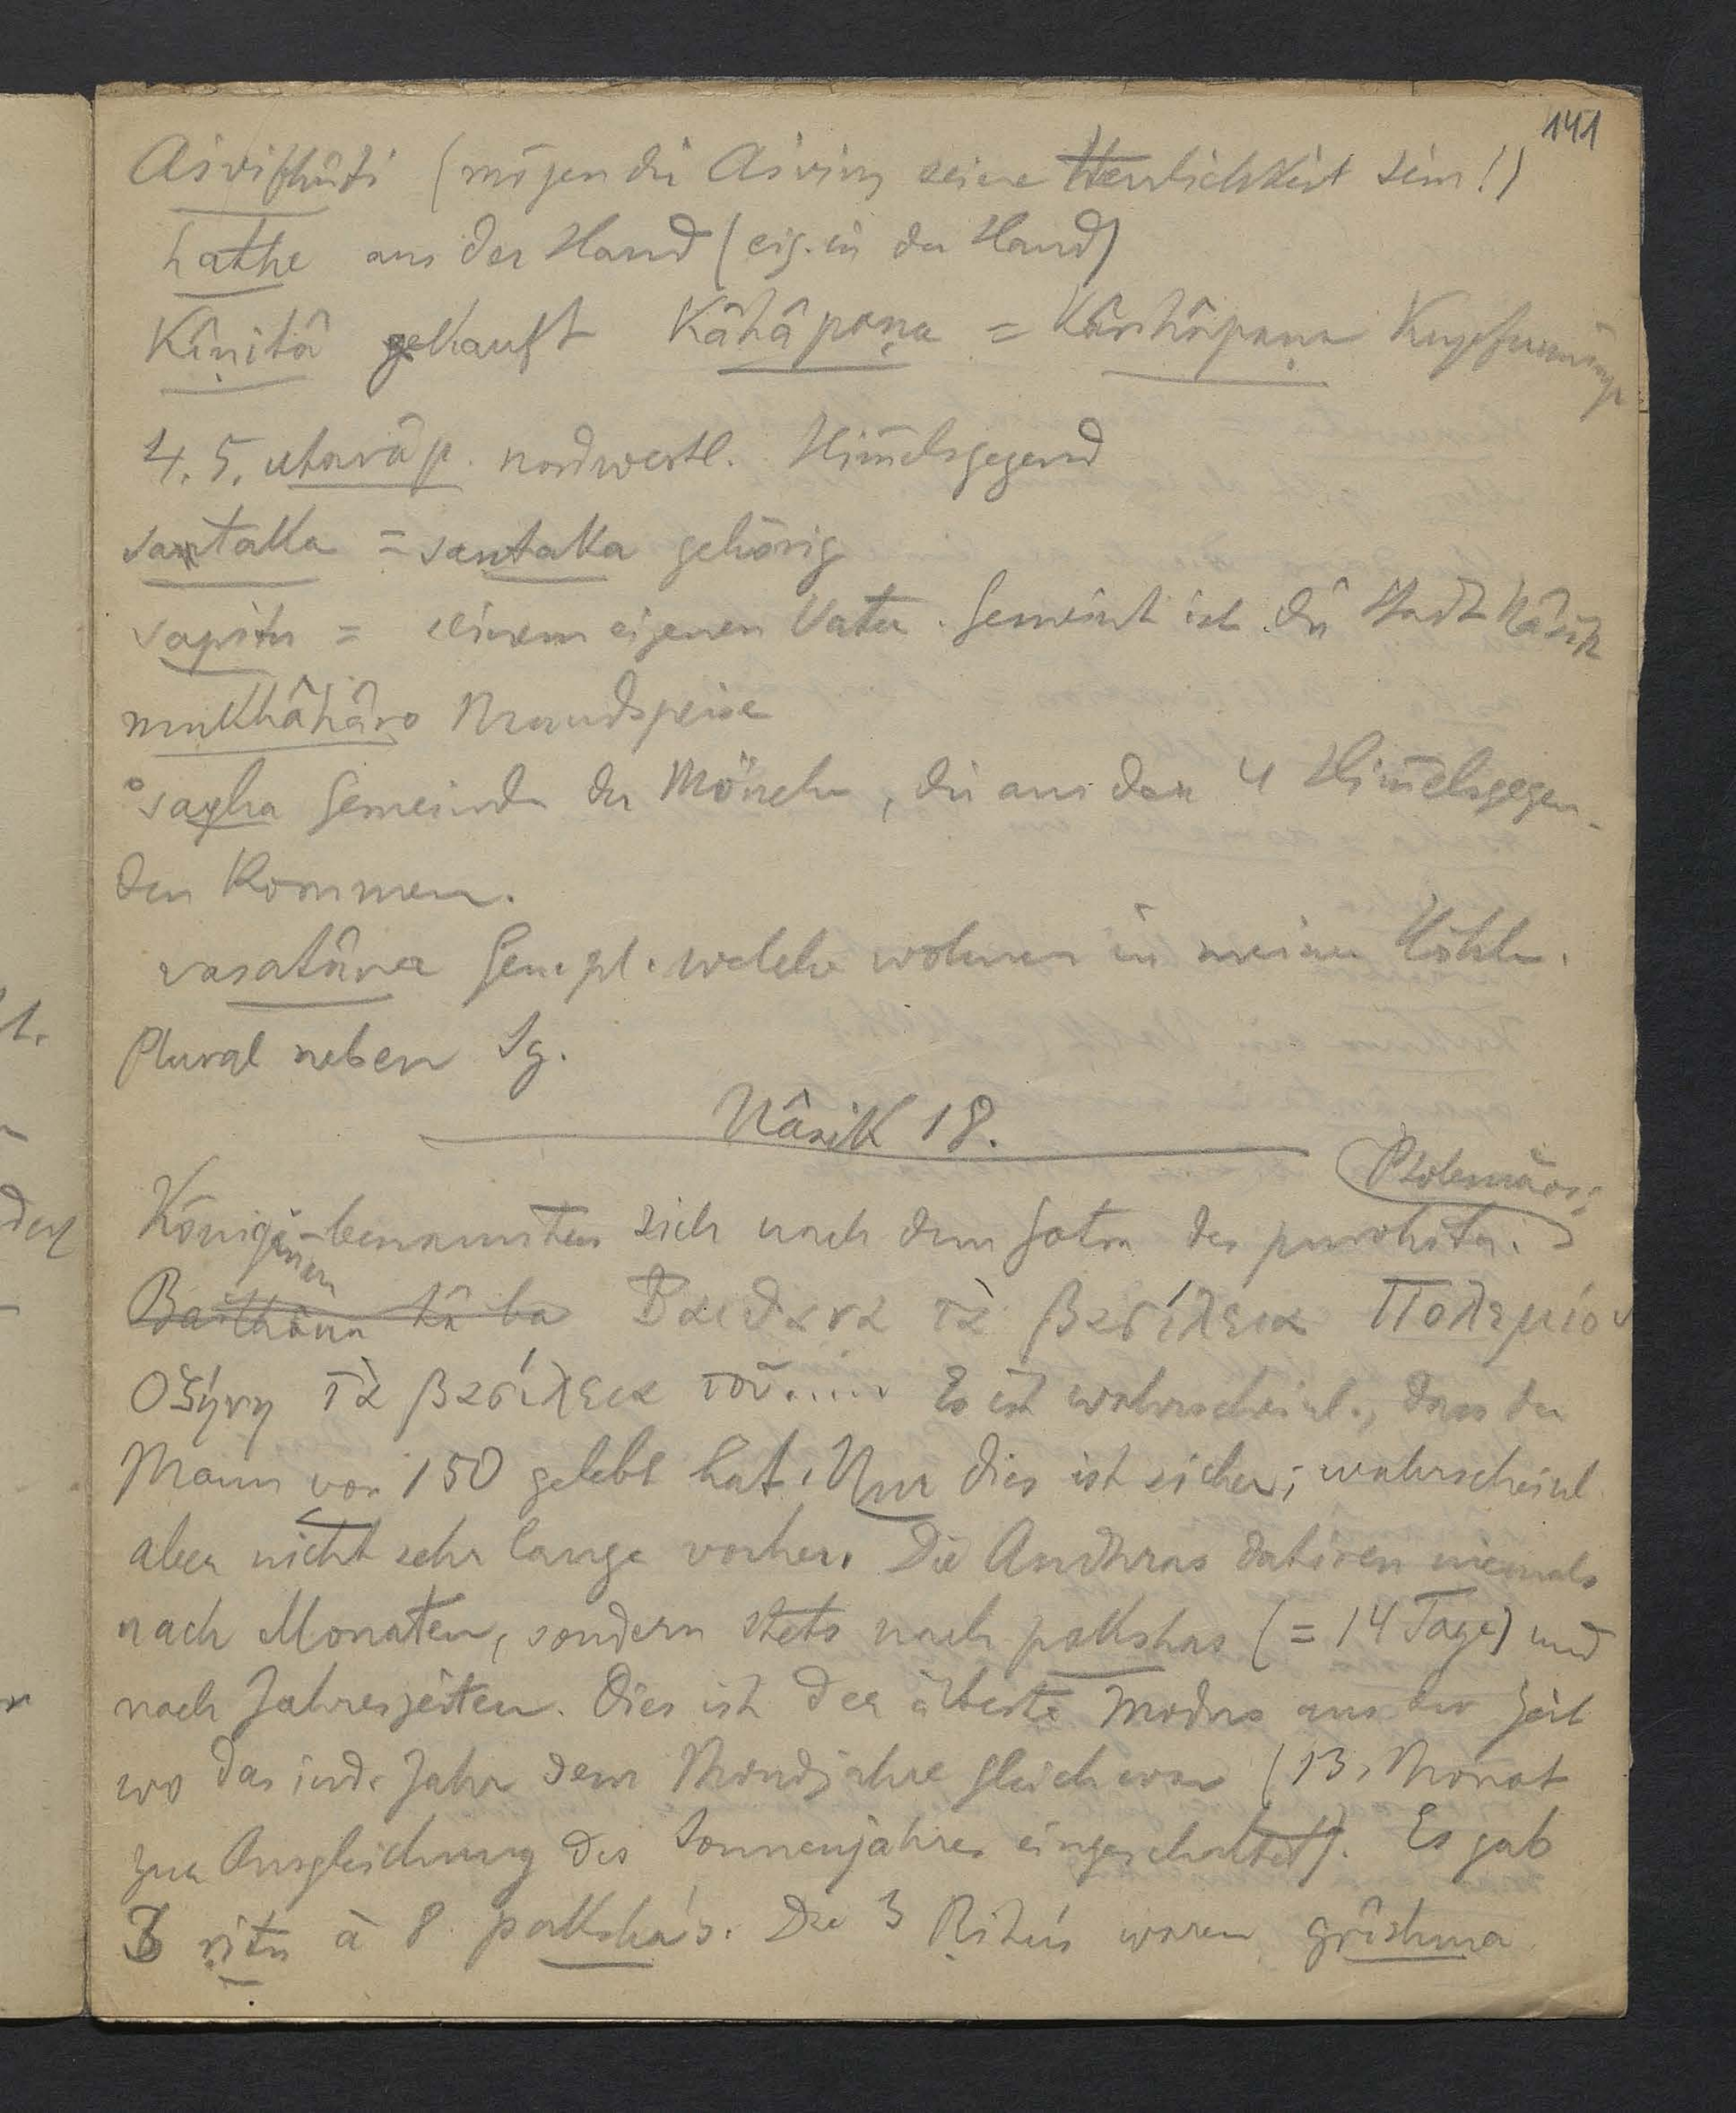 141
Aśvibhûti (mögen die Aśvins seine Herrlichkeit sein!)
hathe aus der Hand (eig. in der Hand)
Kinitâ gekauft Kâhâpaṇa = Kârshâpaṇa Kupfermünze
4. 5. utarâp. nordwestl. Him̄elsgegend
sataka = santaka gehörig
sapitu = seinem eigenen Vater. Gemeint ist die Stadt Nâsik
mukhâhâro Mundspeise
°sagha Gemeinde der Mönche, die aus den 4 Him̄elsgegen-
den kommen.
vasatâna Gen. pl. welche wohnen in meiner Höhle.
Plural neben Sg.
Nâsik 18.
Ptolemäos:
Königinnen benannten sich nach dem Gotra des purohita.
Baithana tà ba Βαιθανα τὰ βασίλεια Πολεμίου
Οζήνη τὰ βασίλεια τοῦ..... Es ist wahrscheinl., dass der
Mann vor 150 gelebt hat. Nur dies ist sicher; wahrscheinl
aber nicht sehr lange vorher. Die Andhras datiren niemals
nach Monaten, sondern stets nach pakshas (= 14 Tage) und
nach Jahreszeiten. Dies ist der älteste Modus aus der Zeit
wo das ind. Jahr dem Mondjahre gleich war (13. Monat
zur Ausgleichung des Sonnenjahres eingeschaltet). Es gab
3 ṛitu à 8 paksha's. Die 3 Ṛitu's waren grîshma